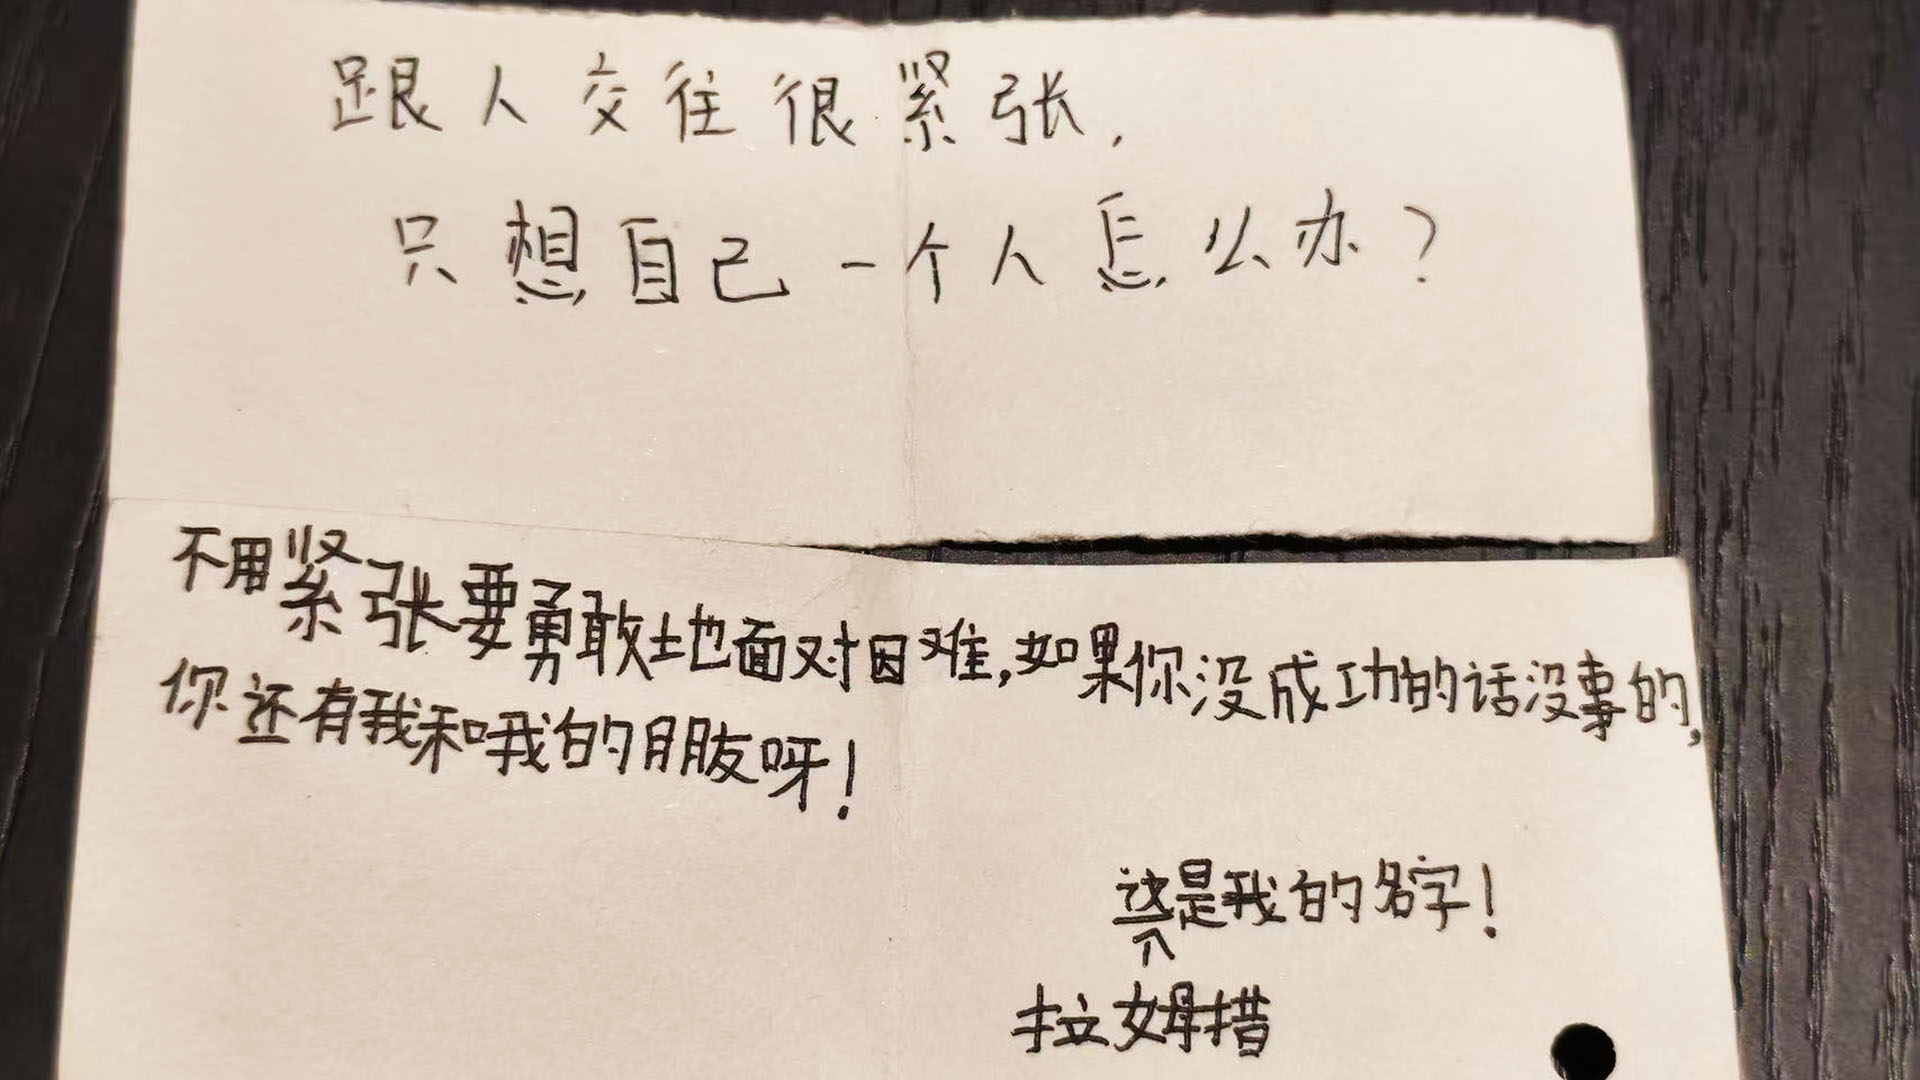 跟人交往很紧张,
只想自己一个人怎么办?
不用紧张要勇敢地面对困难,如果你没成功的话没事的,
你还有我和哦我的朋友呀!
这是我的名字!
拉姆措